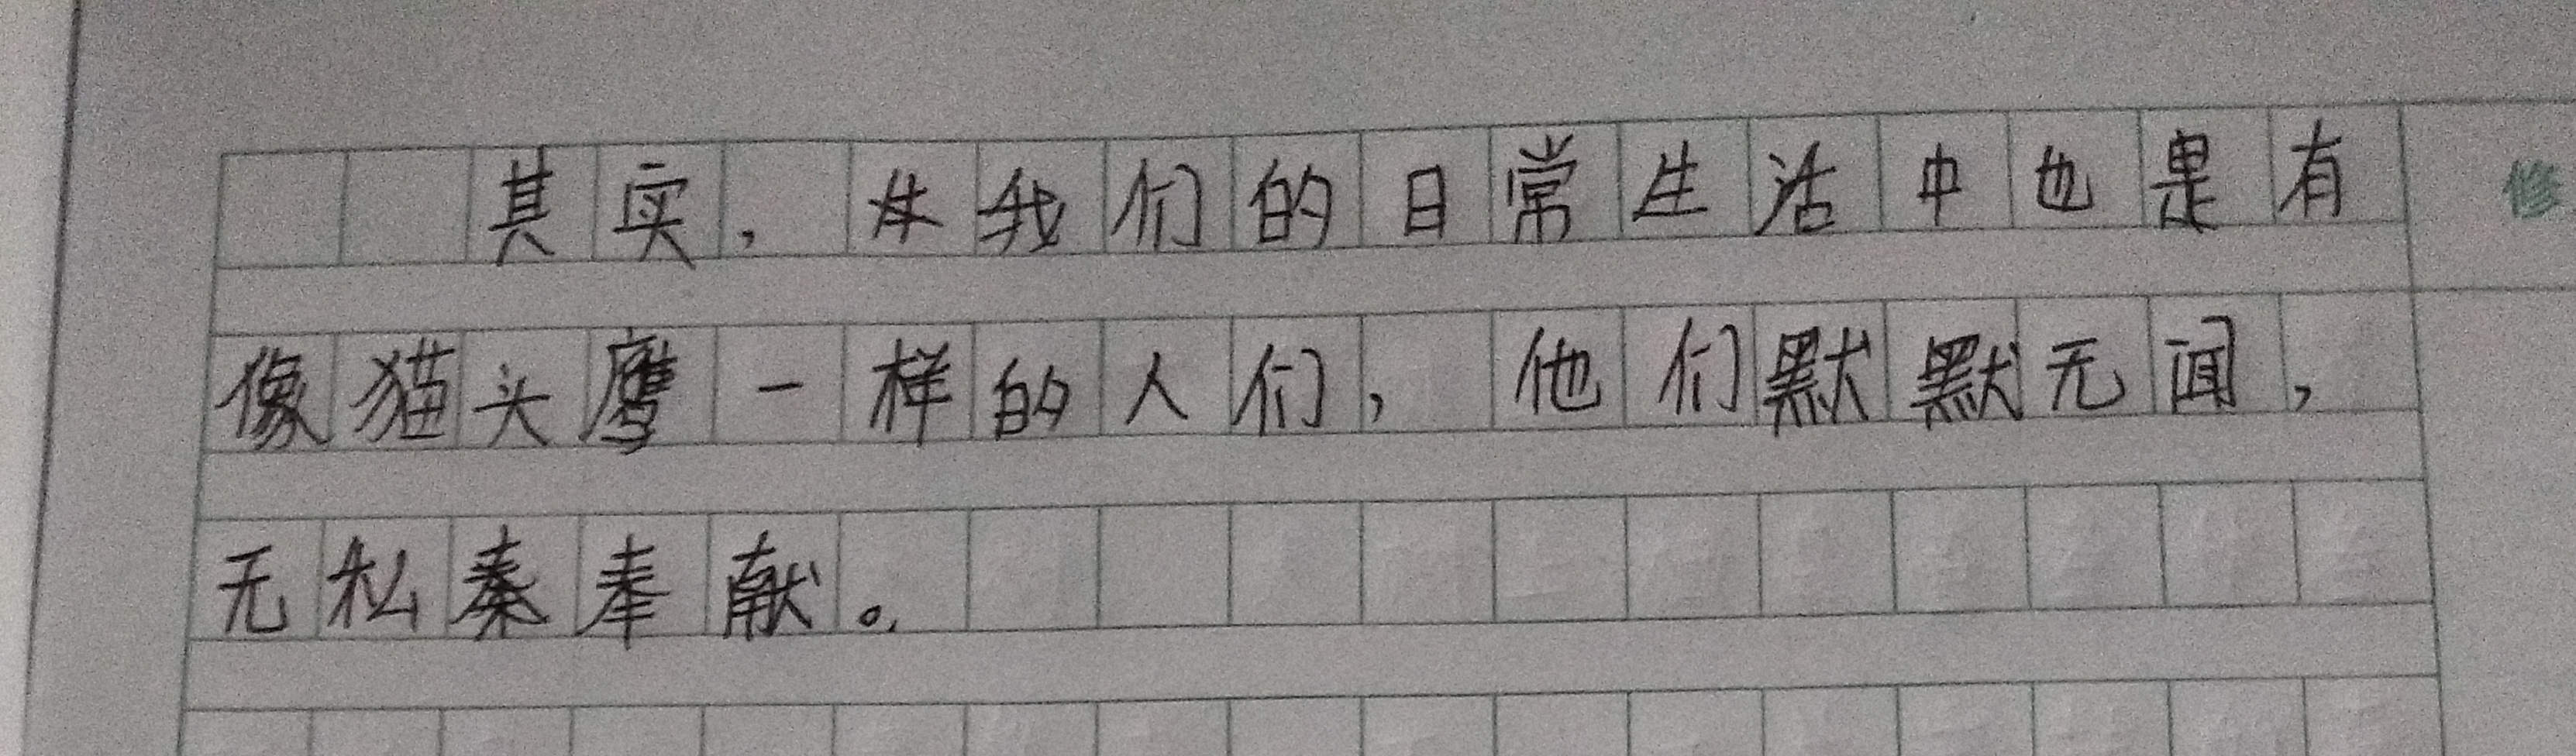 其实，在我们的日常生活中也是有
像猫头鹰一样的人们，他们默默无闻，
无私奉献。
修